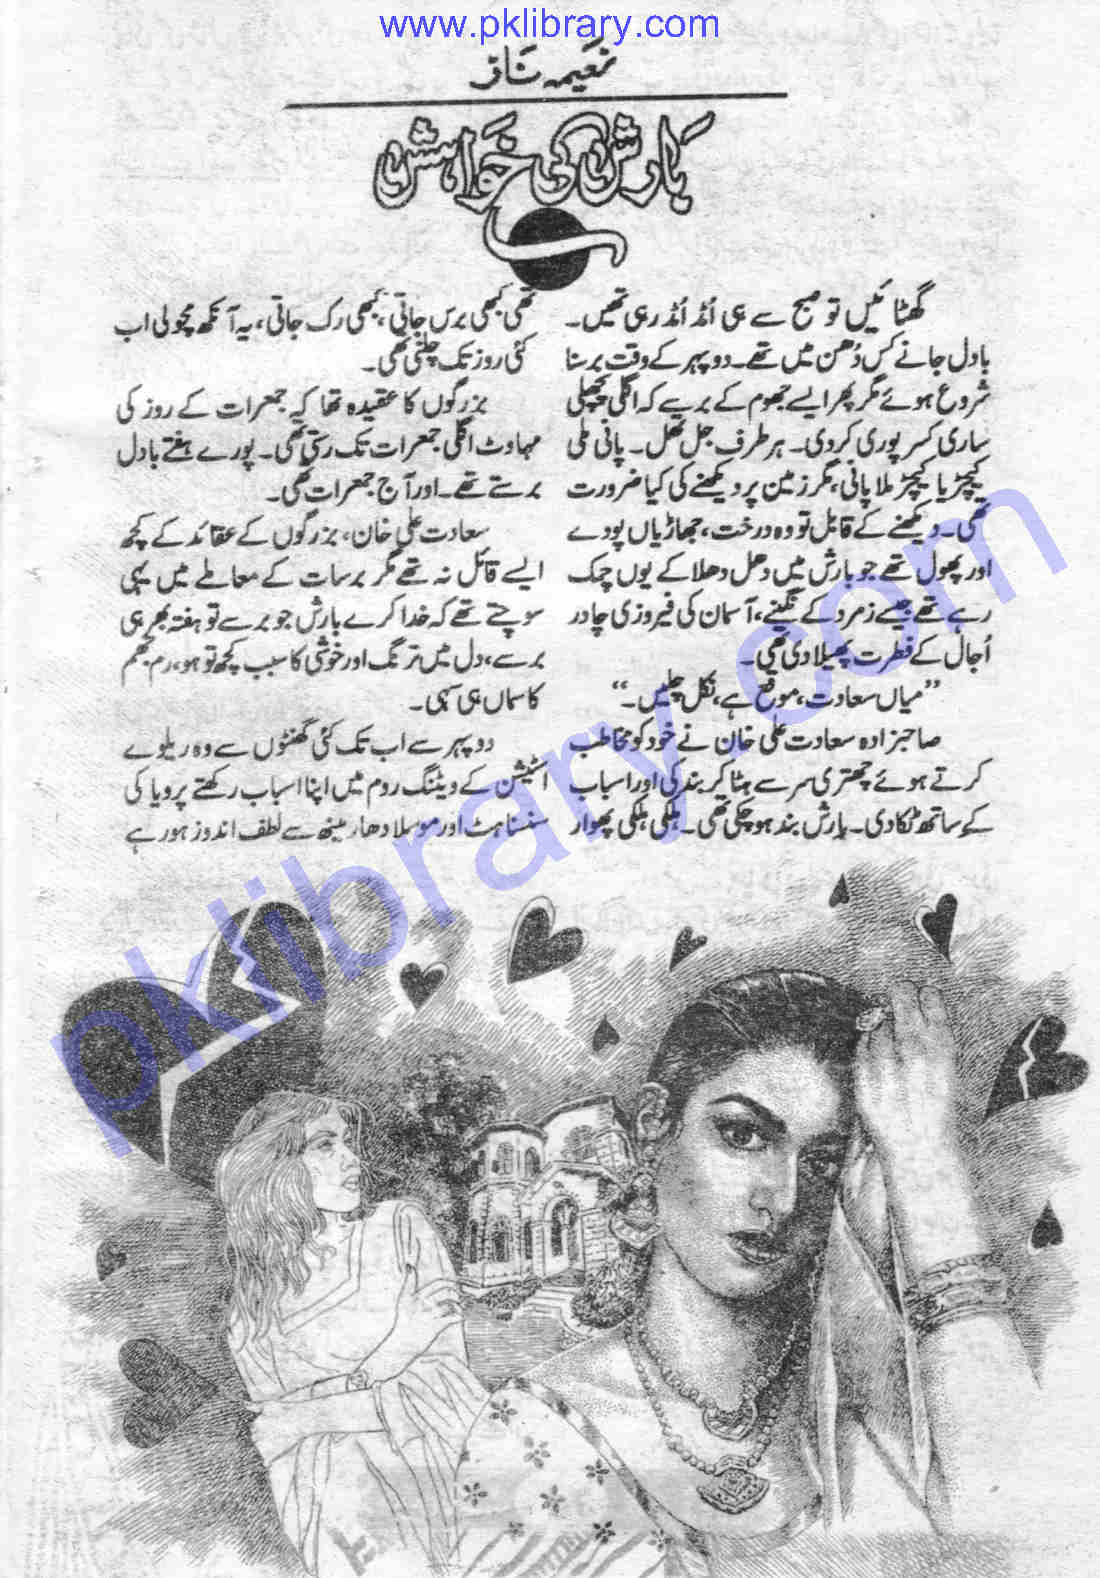 www.pklibrary.com
نعیمہ ناز
بارش کی خواہش
گھٹائیں تو صبح سے ہی اُمڈ اُمڈ رہی تھیں۔
بادل جانے کس دُھن میں تھے۔ دوپہر کے وقت برسنا
شروع ہوئے مگر پھر ایسے جھوم کے برسے کہ اگلی پچھلی
ساری کسر پوری کر دی۔ ہر طرف جل تھل۔ پانی ملی
کیچڑ یا کیچڑ ملا پانی، مگر زمین پر دیکھنے کی کیا ضرورت
تھی۔ دیکھنے کے قابل تو وہ درخت، جھاڑیاں پودے
اور پھول تھے جو بارش میں دھل دھلا کے یوں چمک
رہے تھے جیسے زمرد کے نگینے، آسمان کی فیروزی چادر
اُجال کے فطرت پھیلا دی تھی۔
”میاں سعادت، موقع ہے، نکل چلیں۔“
صاحبزادہ سعادت علی خان نے خود کو مخاطب
کرتے ہوئے چھتری سر سے ہٹا کر بند کی اور اسباب
کے ساتھ ٹکا دی۔ بارش بند ہو چکی تھی۔ ہلکی ہلکی پھوار
تھی کبھی برس جاتی، کبھی رک جاتی، یہ آنکھ مچولی اب
کئی روز تک چلنی تھی۔
بزرگوں کا عقیدہ تھا کہ جمعرات کے روز کی
مہاوٹ اگلی جمعرات تک رہتی تھی۔ پورے ہفتے بادل
برستے تھے۔ اور آج جمعرات تھی۔
سعادت علی خان، بزرگوں کے عقائد کے کچھ
ایسے قائل نہ تھے مگر برسات کے معاملے میں یہی
سوچتے تھے کہ خدا کرے بارش جو برسے تو ہفتہ بھر ہی
برسے، دل میں ترنگ اور خوشی کا سبب کچھ تو ہو، رم جھم
کا سماں ہی سہی۔
دوپہر سے اب تک کئی گھنٹوں سے وہ ریلوے
اسٹیشن کے ویٹنگ روم میں اپنا اسباب رکھتے پروپا کی
سنسناہٹ اور موسلا دھار مینھ سے لطف اندوز ہو رہے
pklibrary.com